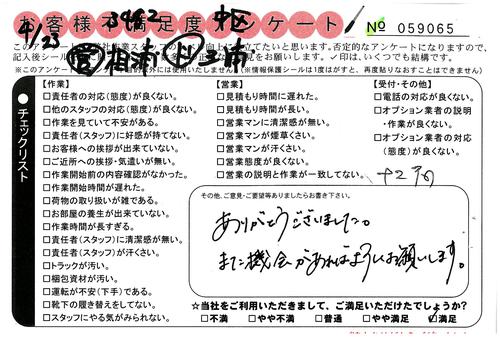 お客様不満足度アンケート!
№ 059065
4/23
3462
このアンケートは
向上に役立てたいと思います。否定的なアンケートになりますので、
記入後シール
✓印は、いくつでも結構です。
※このアンケート
目的以外には使用いたしません。(※情報保護シールは1度はがすと、再度貼りなおすことはできません)
チェックリスト
【作業】
□責任者の対応(態度)が良くない。
□他のスタッフの対応(態度)が良くない。
□作業を見ていて不安がある。
□責任者(スタッフ)に好感が持てない。
□お客様への挨拶が出来ていない。
□ご近所への挨拶・気遣いが無い。
□作業開始前の内容確認がなかった。
□作業開始時間が遅れた。
□荷物の取り扱いが雑である。
□お部屋の養生が出来ていない。
□作業時間が長すぎる。
□責任者(スタッフ)に清潔感が無い。
□責任者(スタッフ)が汗くさい。
□トラックが汚い。
□梱包資材が汚い。
□運転が不安(下手)である。
□靴下の履き替えをしてない。
□スタッフにやる気がみられない。
【営業】
□見積もり時間に遅れた。
□見積もり時間が長い。
□営業マンに清潔感が無い。
□営業マンが煙草くさい。
□営業マンが汗くさい。
□営業態度が良くない。
□営業の説明と作業が一致してない。
【受付・その他】
□電話の対応が良くない。
□オプション業者の説明
・作業が良くない。
□オプション業者の対応
(態度)が良くない。
その他、ご意見・ご要望等ありましたらお書き下さい。
ありがとうございました。
また機会があればよろしくお願いします。
☆当社をご利用いただきまして、ご満足いただけたでしょうか?
□不満 □やや不満 □普通 □やや満足 ☑満足